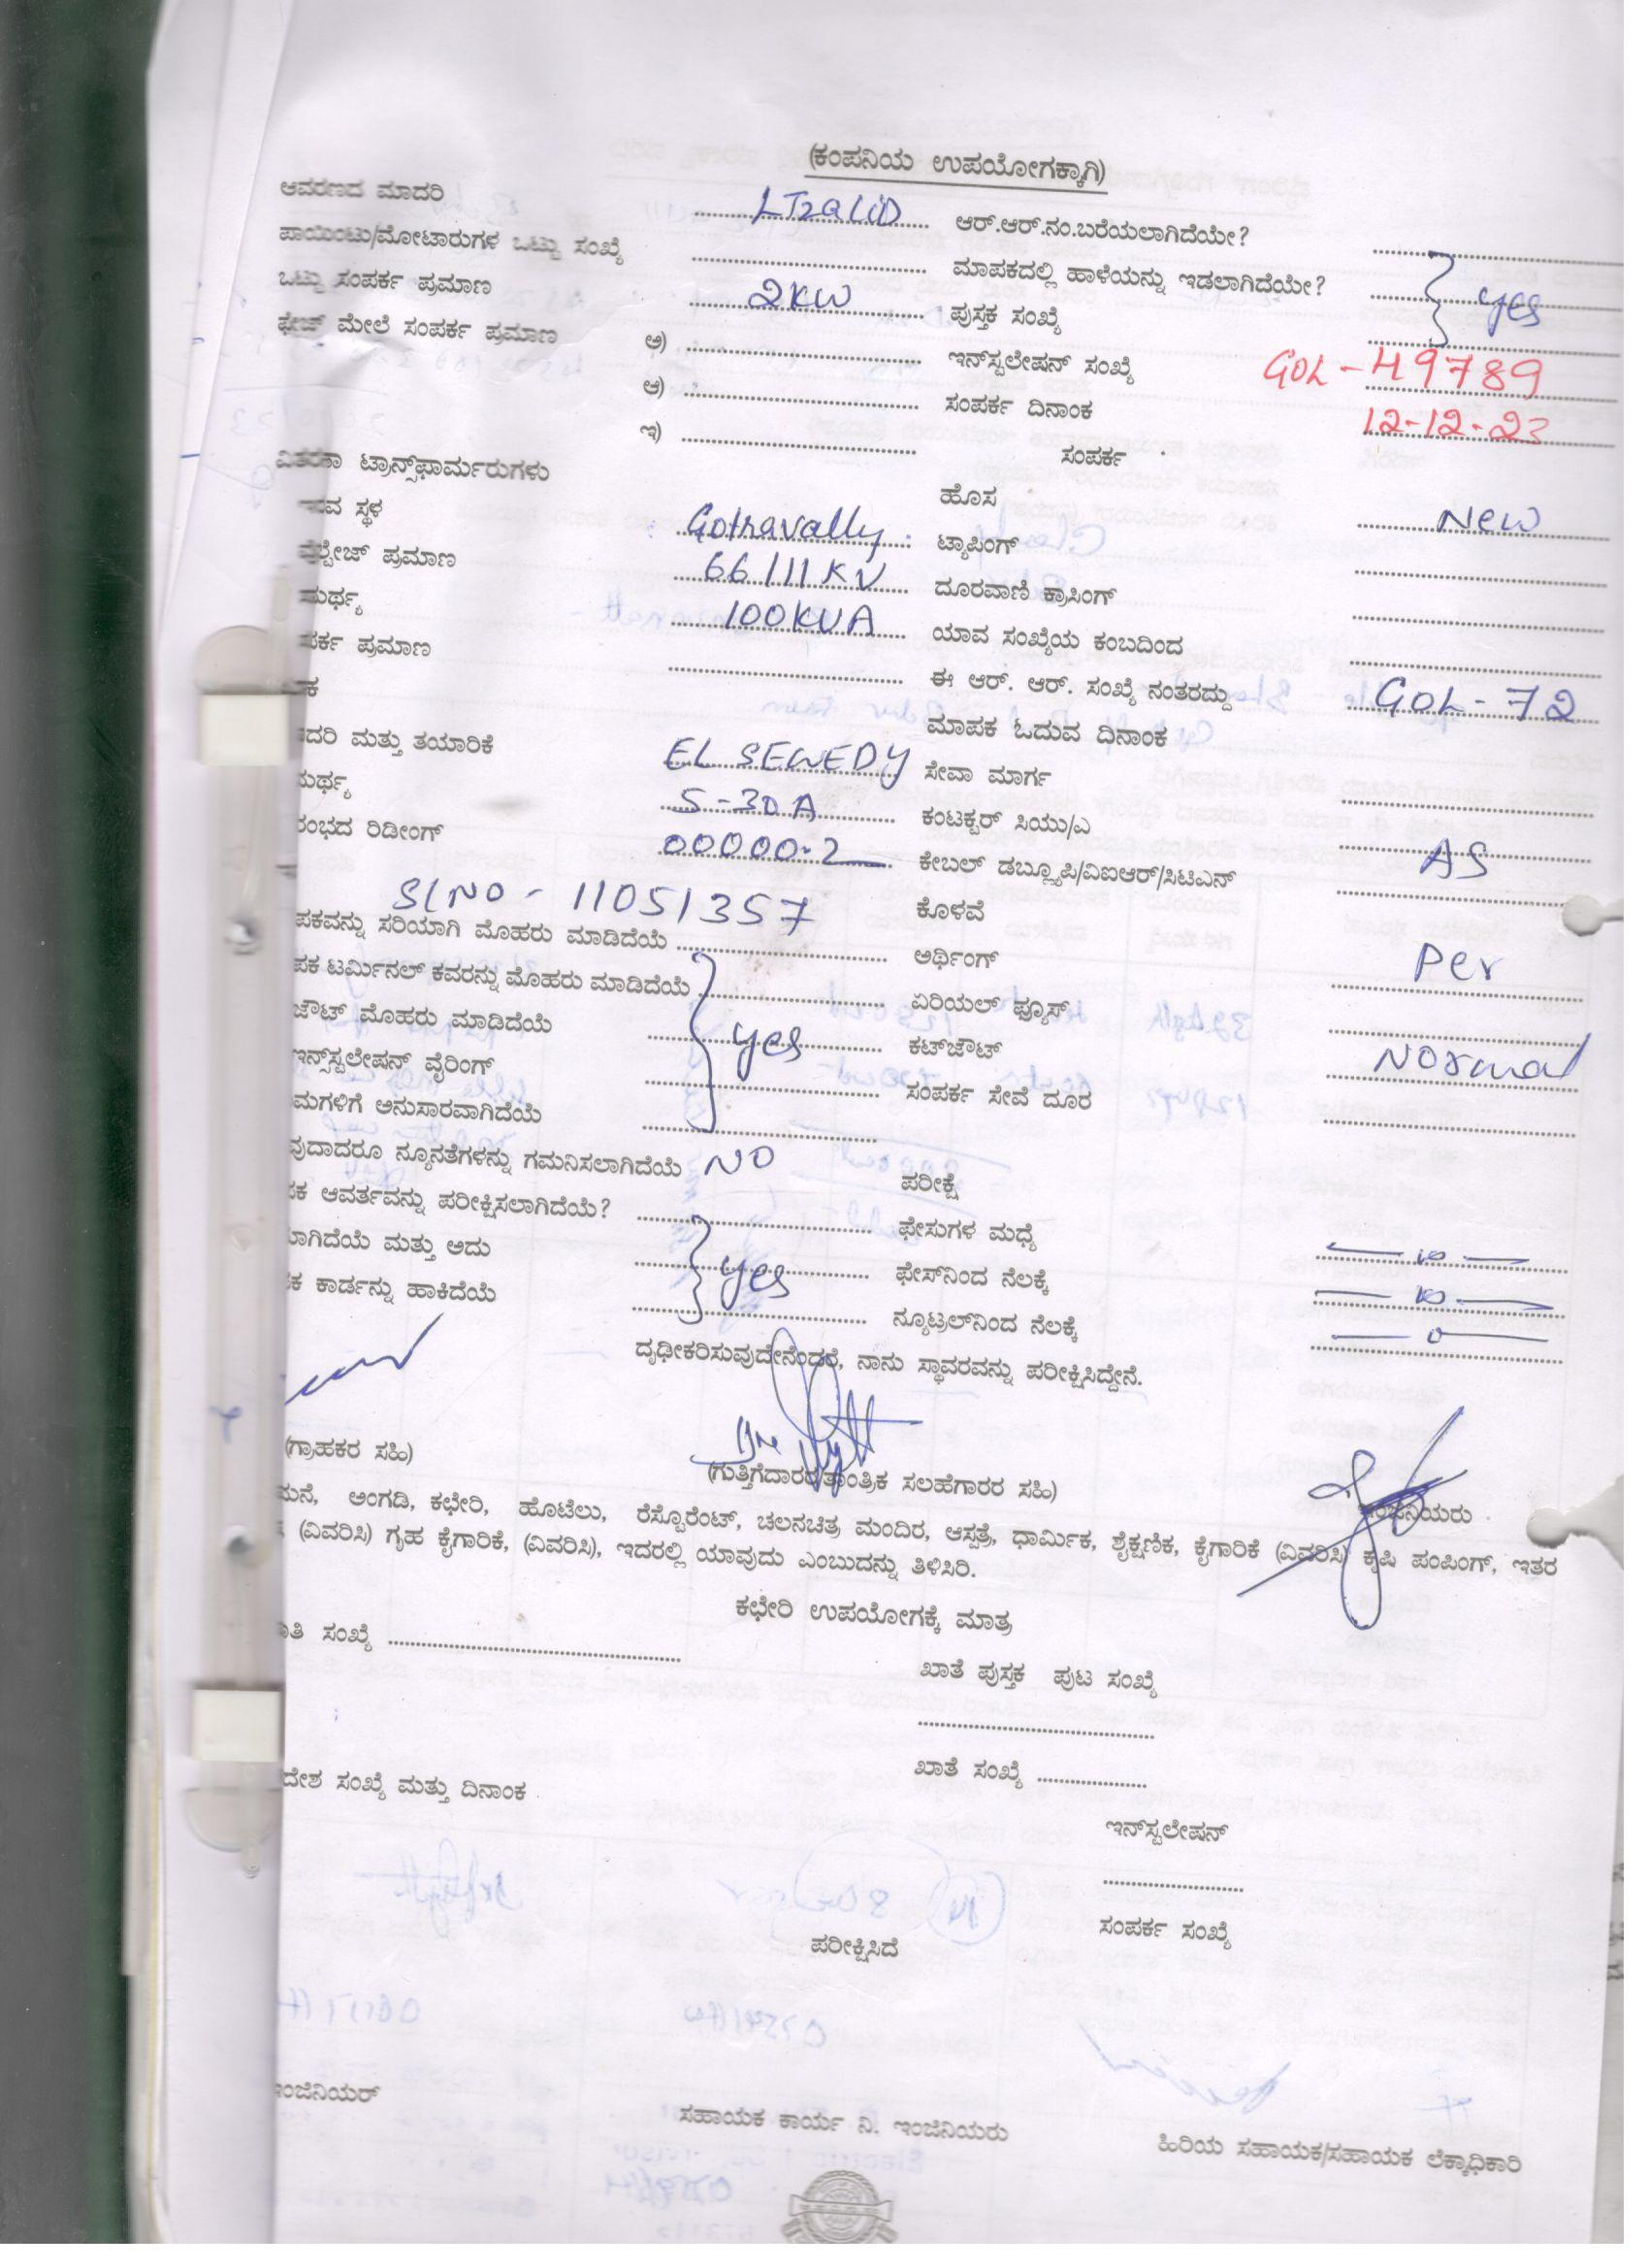 (ಕಂಪನಿಯ ಉಪಯೋಗಕ್ಕಾಗಿ)
ಆವರಣದ ಮಾದರಿ LT2a(ii) ಆರ್.ಆರ್.ನಂ.ಬರೆಯಲಾಗಿದೆಯೇ?
ಪಾಯಿಂಟು/ಮೋಟಾರುಗಳ ಒಟ್ಟು ಸಂಖ್ಯೆ ಮಾಪಕದಲ್ಲಿ ಹಾಳೆಯನ್ನು ಇಡಲಾಗಿದೆಯೇ? yes
ಒಟ್ಟು ಸಂಪರ್ಕ ಪ್ರಮಾಣ 2KW ಪುಸ್ತಕ ಸಂಖ್ಯೆ
ಫೇಜ್ ಮೇಲೆ ಸಂಪರ್ಕ ಪ್ರಮಾಣ ಅ) ಇನ್‌ಸ್ಟಲೇಷನ್ ಸಂಖ್ಯೆ GOL-49789
ಆ) ಸಂಪರ್ಕ ದಿನಾಂಕ 12-12-23
ಇ) ಸಂಪರ್ಕ
ವಿತರಣಾ ಟ್ರಾನ್ಸ್‌ಫಾರ್ಮರುಗಳು ಹೊಸ New
ಇರುವ ಸ್ಥಳ Gothavally ಟ್ಯಾಪಿಂಗ್
ವೋಲ್ಟೇಜ್ ಪ್ರಮಾಣ 66/11KV ದೂರವಾಣಿ ಕ್ರಾಸಿಂಗ್
ಮರ್ಥ್ಯ 100KVA ಯಾವ ಸಂಖ್ಯೆಯ ಕಂಬದಿಂದ
ಪರ್ಕ ಪ್ರಮಾಣ ಈ ಆರ್. ಆರ್. ಸಂಖ್ಯೆ ನಂತರದ್ದು GOL-72
ಕ ಮಾಪಕ ಓದುವ ದಿನಾಂಕ
ದರಿ ಮತ್ತು ತಯಾರಿಕೆ EL SEWEDY ಸೇವಾ ಮಾರ್ಗ
ಮರ್ಥ್ಯ 5-30A ಕಂಟಕ್ಟರ್ ಸಿಯು/ಎ
ರಂಭದ ರಿಡೀಂಗ್ 00000.2 ಕೇಬಲ್ ಡಬ್ಲ್ಯೂಪಿ/ವಿಐಆರ್/ಸಿಟಿಎನ್ AS
Sl NO - 11051357 ಕೊಳವೆ
ಪಕವನ್ನು ಸರಿಯಾಗಿ ಮೊಹರು ಮಾಡಿದೆಯೆ ಅರ್ಥಿಂಗ್ Per
ಪಕ ಟರ್ಮಿನಲ್ ಕವರನ್ನು ಮೊಹರು ಮಾಡಿದೆಯೆ ಏರಿಯಲ್ ಫ್ಯೂಸ್
ಜೌಟ್ ಮೊಹರು ಮಾಡಿದೆಯೆ yes ಕಟ್‌ಜೌಟ್ Normal
ಇನ್ಸ್‌ಸ್ಟಲೇಷನ್ ವೈರಿಂಗ್ ಸಂಪರ್ಕ ಸೇವೆ ದೂರ
ಮಗಳಿಗೆ ಅನುಸಾರವಾಗಿದೆಯೆ
ವುದಾದರೂ ನ್ಯೂನತೆಗಳನ್ನು ಗಮನಿಸಲಾಗಿದೆಯೆ NO ಪರೀಕ್ಷೆ
ಪಕ ಆವರ್ತವನ್ನು ಪರೀಕ್ಷಿಸಲಾಗಿದೆಯೆ? ಫೇಸುಗಳ ಮಧ್ಯೆ
ಲಾಗಿದೆಯೆ ಮತ್ತು ಅದು yes ಫೇಸ್‌ನಿಂದ ನೆಲಕ್ಕೆ
ಪಕ ಕಾರ್ಡನ್ನು ಹಾಕಿದೆಯೆ ನ್ಯೂಟ್ರಲ್‌ನಿಂದ ನೆಲಕ್ಕೆ 0
ದೃಢೀಕರಿಸುವುದೇನೆಂದರೆ, ನಾನು ಸ್ಥಾವರವನ್ನು ಪರೀಕ್ಷಿಸಿದ್ದೇನೆ.
(ಗ್ರಾಹಕರ ಸಹಿ) (ಗುತ್ತಿಗೆದಾರರ/ತಾಂತ್ರಿಕ ಸಲಹೆಗಾರರ ಸಹಿ) ಇಂಜಿನಿಯರು
ಮನೆ, ಅಂಗಡಿ, ಕಛೇರಿ, ಹೊಟೆಲು, ರೆಸ್ಟೊರೆಂಟ್, ಚಲನಚಿತ್ರ ಮಂದಿರ, ಆಸ್ಪತ್ರೆ, ಧಾರ್ಮಿಕ, ಶೈಕ್ಷಣಿಕ, ಕೈಗಾರಿಕೆ (ವಿವರಿಸಿ) ಕೃಷಿ ಪಂಪಿಂಗ್, ಇತರ
(ವಿವರಿಸಿ) ಗೃಹ ಕೈಗಾರಿಕೆ, (ವಿವರಿಸಿ), ಇದರಲ್ಲಿ ಯಾವುದು ಎಂಬುದನ್ನು ತಿಳಿಸಿರಿ.
ಕಛೇರಿ ಉಪಯೋಗಕ್ಕೆ ಮಾತ್ರ
ತಿ ಸಂಖ್ಯೆ
ಖಾತೆ ಪುಸ್ತಕ ಪುಟ ಸಂಖ್ಯೆ
ದೇಶ ಸಂಖ್ಯೆ ಮತ್ತು ದಿನಾಂಕ ಖಾತೆ ಸಂಖ್ಯೆ
ಇನ್‌ಸ್ಟಲೇಷನ್
ಪರೀಕ್ಷಿಸಿದೆ ಸಂಪರ್ಕ ಸಂಖ್ಯೆ
ಇಂಜಿನಿಯರ್ ಸಹಾಯಕ ಕಾರ್ಯ ನಿ. ಇಂಜಿನಿಯರು ಹಿರಿಯ ಸಹಾಯಕ/ಸಹಾಯಕ ಲೆಕ್ಕಾಧಿಕಾರಿ